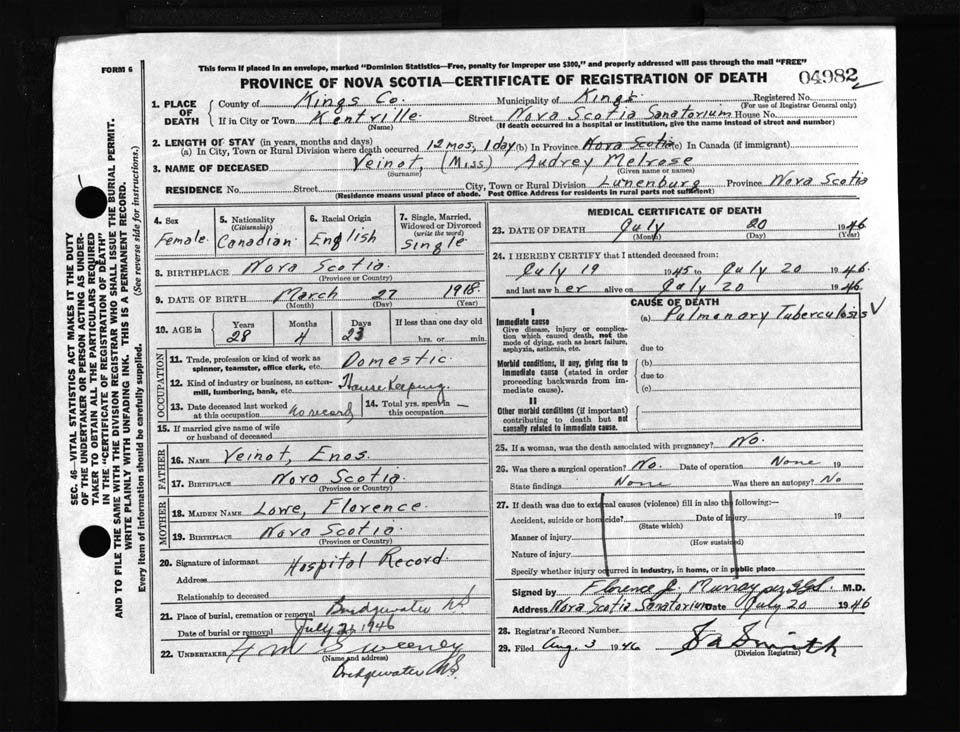 FORM 6
This form if placed in an envelope, marked "Dominion Statistics—Free, penalty for improper use $300," and properly addressed will pass through the mail "FREE"
PROVINCE OF NOVA SCOTIA—CERTIFICATE OF REGISTRATION OF DEATH
04982
SEC. 46—VITAL STATISTICS ACT MAKES IT THE DUTY
OF THE UNDERTAKER OR PERSON ACTING AS UNDER-
TAKER TO OBTAIN ALL THE PARTICULARS REQUIRED
IN THE "CERTIFICATE OF REGISTRATION OF DEATH"
AND TO FILE THE SAME WITH THE DIVISION REGISTRAR WHO SHALL ISSUE THE BURIAL PERMIT.
WRITE PLAINLY WITH UNFADING INK. THIS IS A PERMANENT RECORD.
Every item of information should be carefully supplied. (See reverse side for instructions.)
1. PLACE OF DEATH
County of Kings Co. Municipality of Kings Registered No.
(For use of Registrar General only)
If in City or Town Kentville Street Nova Scotia Sanatorium House No.
(Name) (If death occurred in a hospital or institution, give the name instead of street and number)
2. LENGTH OF STAY (in years, months and days)
(a) In City, Town or Rural Division where death occurred 12 mos, 1 day (b) In Province Nova Scotia (c) In Canada (if immigrant)
3. NAME OF DECEASED Veinot, (Miss) Audrey Melrose
(Surname) (Given name or names)
RESIDENCE No. Street City, Town or Rural Division Lunenburg Province Nova Scotia
(Residence means usual place of abode. Post Office Address for residents in rural parts not sufficient)
4. Sex Female
5. Nationality (Citizenship) Canadian
6. Racial Origin English
7. Single, Married, Widowed or Divorced (write the word) Single
8. BIRTHPLACE Nova Scotia
(Province or Country)
9. DATE OF BIRTH March 27 1918
(Month) (Day) (Year)
10. AGE in Years 28 Months 4 Days 23 If less than one day old hrs. or min.
OCCUPATION
11. Trade, profession or kind of work as spinner, teamster, office clerk, etc. Domestic
12. Kind of industry or business, as cotton-mill, lumbering, bank, etc. House Keeping
13. Date deceased last worked at this occupation no record
14. Total yrs. spent in this occupation —
15. If married give name of wife or husband of deceased
FATHER
16. NAME Veinot, Enos.
17. BIRTHPLACE Nova Scotia
(Province or Country)
MOTHER
18. MAIDEN NAME Lowe, Florence
19. BIRTHPLACE Nova Scotia
(Province or Country)
20. Signature of informant Hospital Record
Address
Relationship to deceased
21. Place of burial, cremation or removal Bridgewater NS
Date of burial or removal July 1946
22. UNDERTAKER Sweeney
(Name and address)
Bridgewater N.S.
MEDICAL CERTIFICATE OF DEATH
23. DATE OF DEATH July 20 1946
(Month) (Day) (Year)
24. I HEREBY CERTIFY that I attended deceased from:
July 19 1945 to July 20 1946
and last saw her alive on July 20 1946
CAUSE OF DEATH
I
Immediate cause
Give disease, injury or complication which caused death, not the mode of dying, such as heart failure, asphyxia, asthenia, etc.
(a) Pulmonary Tuberculosis
due to
Morbid conditions, if any, giving rise to immediate cause (stated in order proceeding backwards from immediate cause).
(b)
due to
(c)
II
Other morbid conditions (if important) contributing to death but not causally related to immediate cause.
25. If a woman, was the death associated with pregnancy? No.
26. Was there a surgical operation? No. Date of operation None 19
State findings None Was there an autopsy? No
27. If death was due to external causes (violence) fill in also the following:—
Accident, suicide or homicide? Date of injury 19
(State which)
Manner of injury
(How sustained)
Nature of injury
Specify whether injury occurred in industry, in home, or in public place
Signed by Florence J. Murray M.D.
Address Nova Scotia Sanatorium Date July 20 1946
28. Registrar's Record Number
29. Filed Aug. 3 1946 Smith
(Division Registrar)